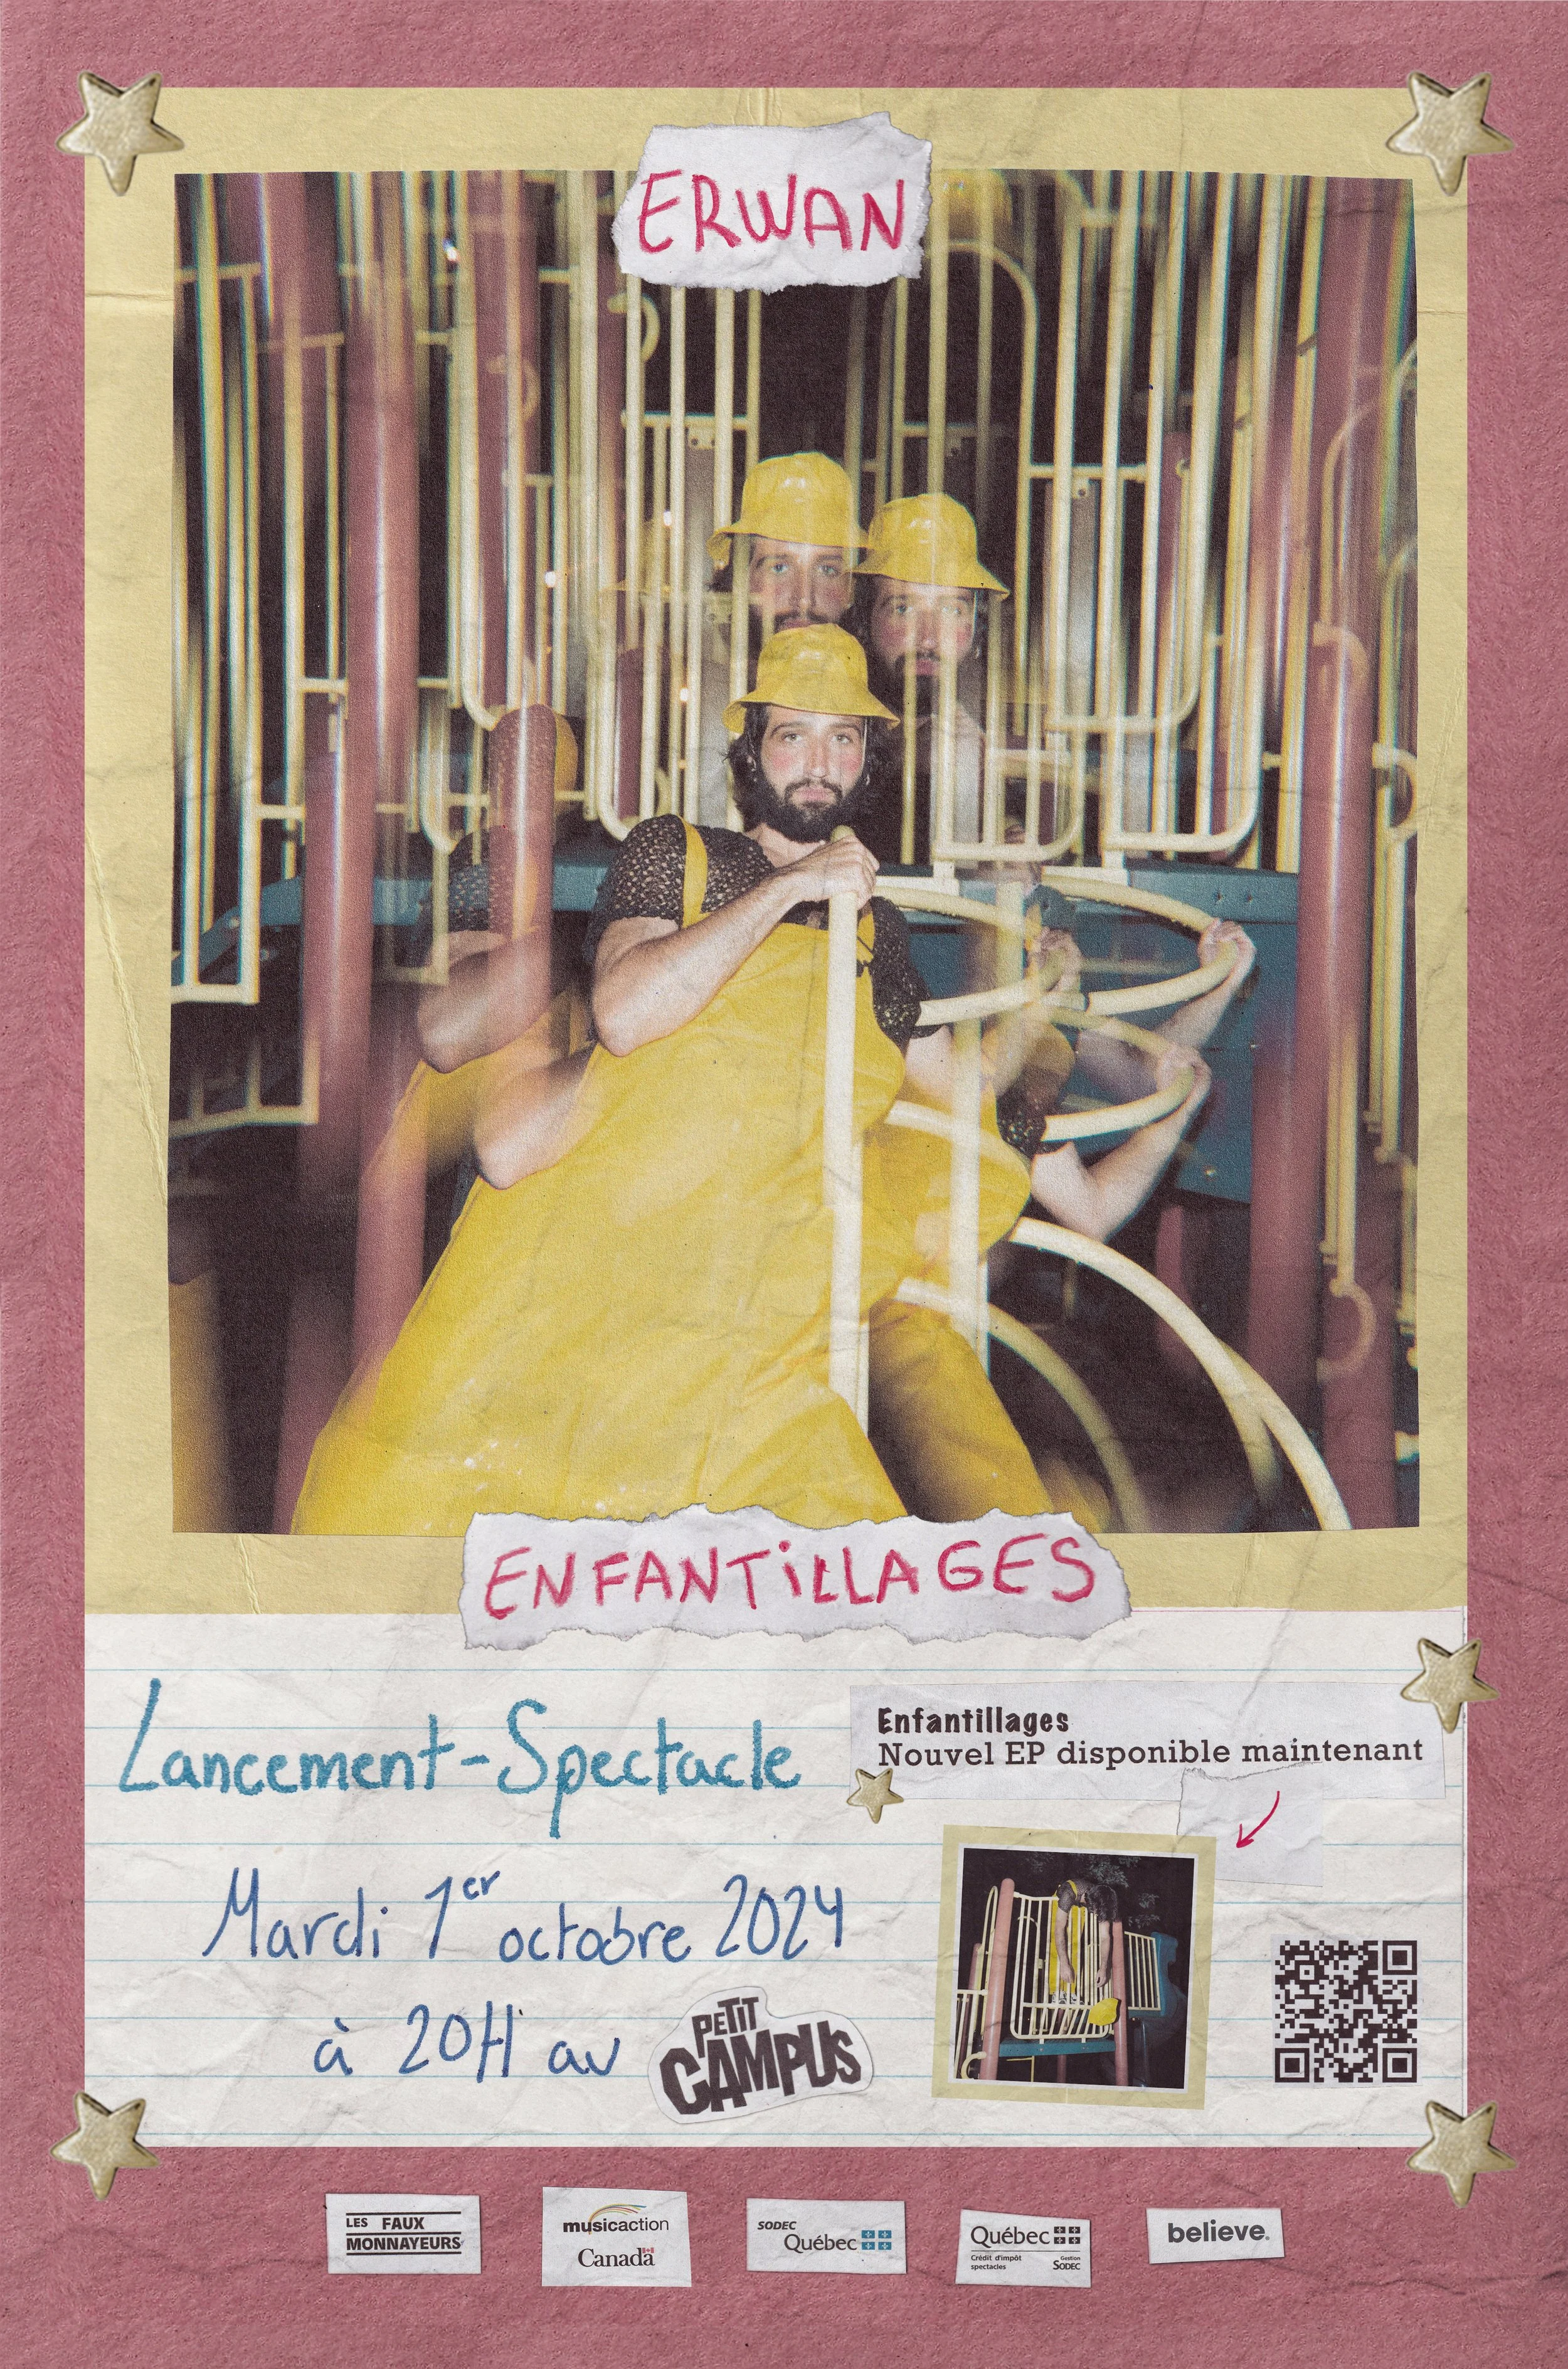 ERWAN
ENFANTiLLAGES
Lancement-Spectacle
Enfantillages
Nouvel EP disponible maintenant
Mardi 1er octobre 2024
à 20H au PETIT CAMPUS
LES FAUX
MONNAYEURS
musicaction
Canada
SODEC
Québec
Québec
Crédit d'impôt
spectacles
Gestion
SODEC
believe.